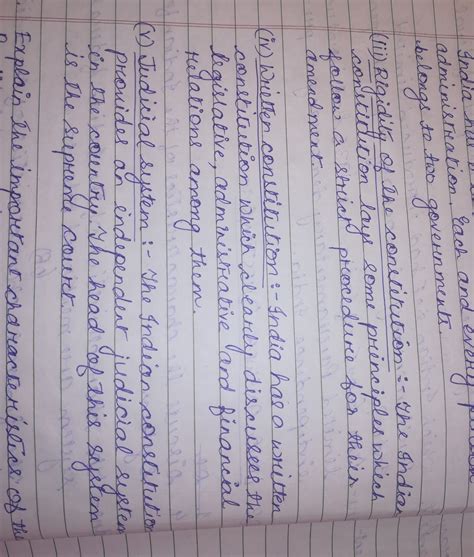 administration. Each and every
belongs to two governments.
(iii) Rigidity of the constitution :- The Indian
constitution lays some principles which
follow a strict procedure for their
amendment.
(iv) Written constitution :- India has a written
constitution which clearly discusses the
legislative, administrative and financial
relations among them.
(v) Judicial system :- The Indian constitution
provides an independent judicial system
in the country. The head of this system
is the supreme court.
Explain the important characteristics of the